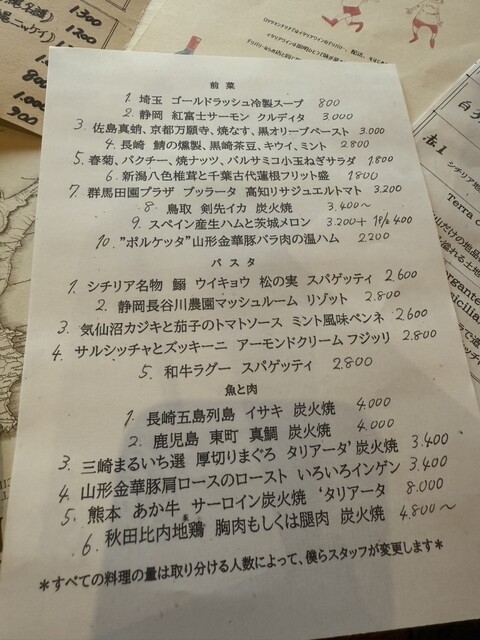 前菜
1. 埼玉 ゴールドラッシュ冷製スープ 800
2. 静岡 紅富士サーモン クルディタ 3.000
3. 佐島真蛸、京都万願寺、焼なす、黒オリーブペースト 3.000
4. 長崎 鯖の燻製、黒崎茶豆、キウイ、ミント 2.800
5. 春菊、パクチー、焼ナッツ、バルサミコ小玉ねぎサラダ 1.800
6. 新潟八色椎茸と千葉古代蓮根フリット盛 1800
7. 群馬田園プラザ ブッラータ 高知リサジュエルトマト 3.200
8. 鳥取 剣先イカ 炭火焼 3.400〜
9. スペイン産生ハムと茨城メロン 3.200+ 1P/s 400
10. "ポルケッタ"山形金華豚バラ肉の温ハム 2.200
パスタ
1. シチリア名物 鰯 ウイキョウ 松の実 スパゲッティ 2.600
2. 静岡長谷川農園マッシュルーム リゾット 2.800
3. 気仙沼カジキと茄子のトマトソース ミント風味ペンネ 2.600
4. サルシッチャとズッキーニ アーモンドクリームフジッリ 2.800
5. 和牛ラグー スパゲッティ 2.800
魚と肉
1. 長崎五島列島 イサキ 炭火焼 4.000
2. 鹿児島 東町 真鯛 炭火焼 4.000
3. 三崎まるいち選 厚切りまぐろ タリアータ'炭火焼 3.400
4. 山形金華豚肩ロースのロースト いろいろインゲン 3.400
5. 熊本 あか牛 サーロイン炭火焼 'タリアータ 8.000
6. 秋田比内地鶏 胸肉もしくは腿肉 炭火焼 4.800〜
*すべての料理の量は取り分ける人数によって、僕らスタッフが変更します*
1300
1200
赤1
シチリア
Terra